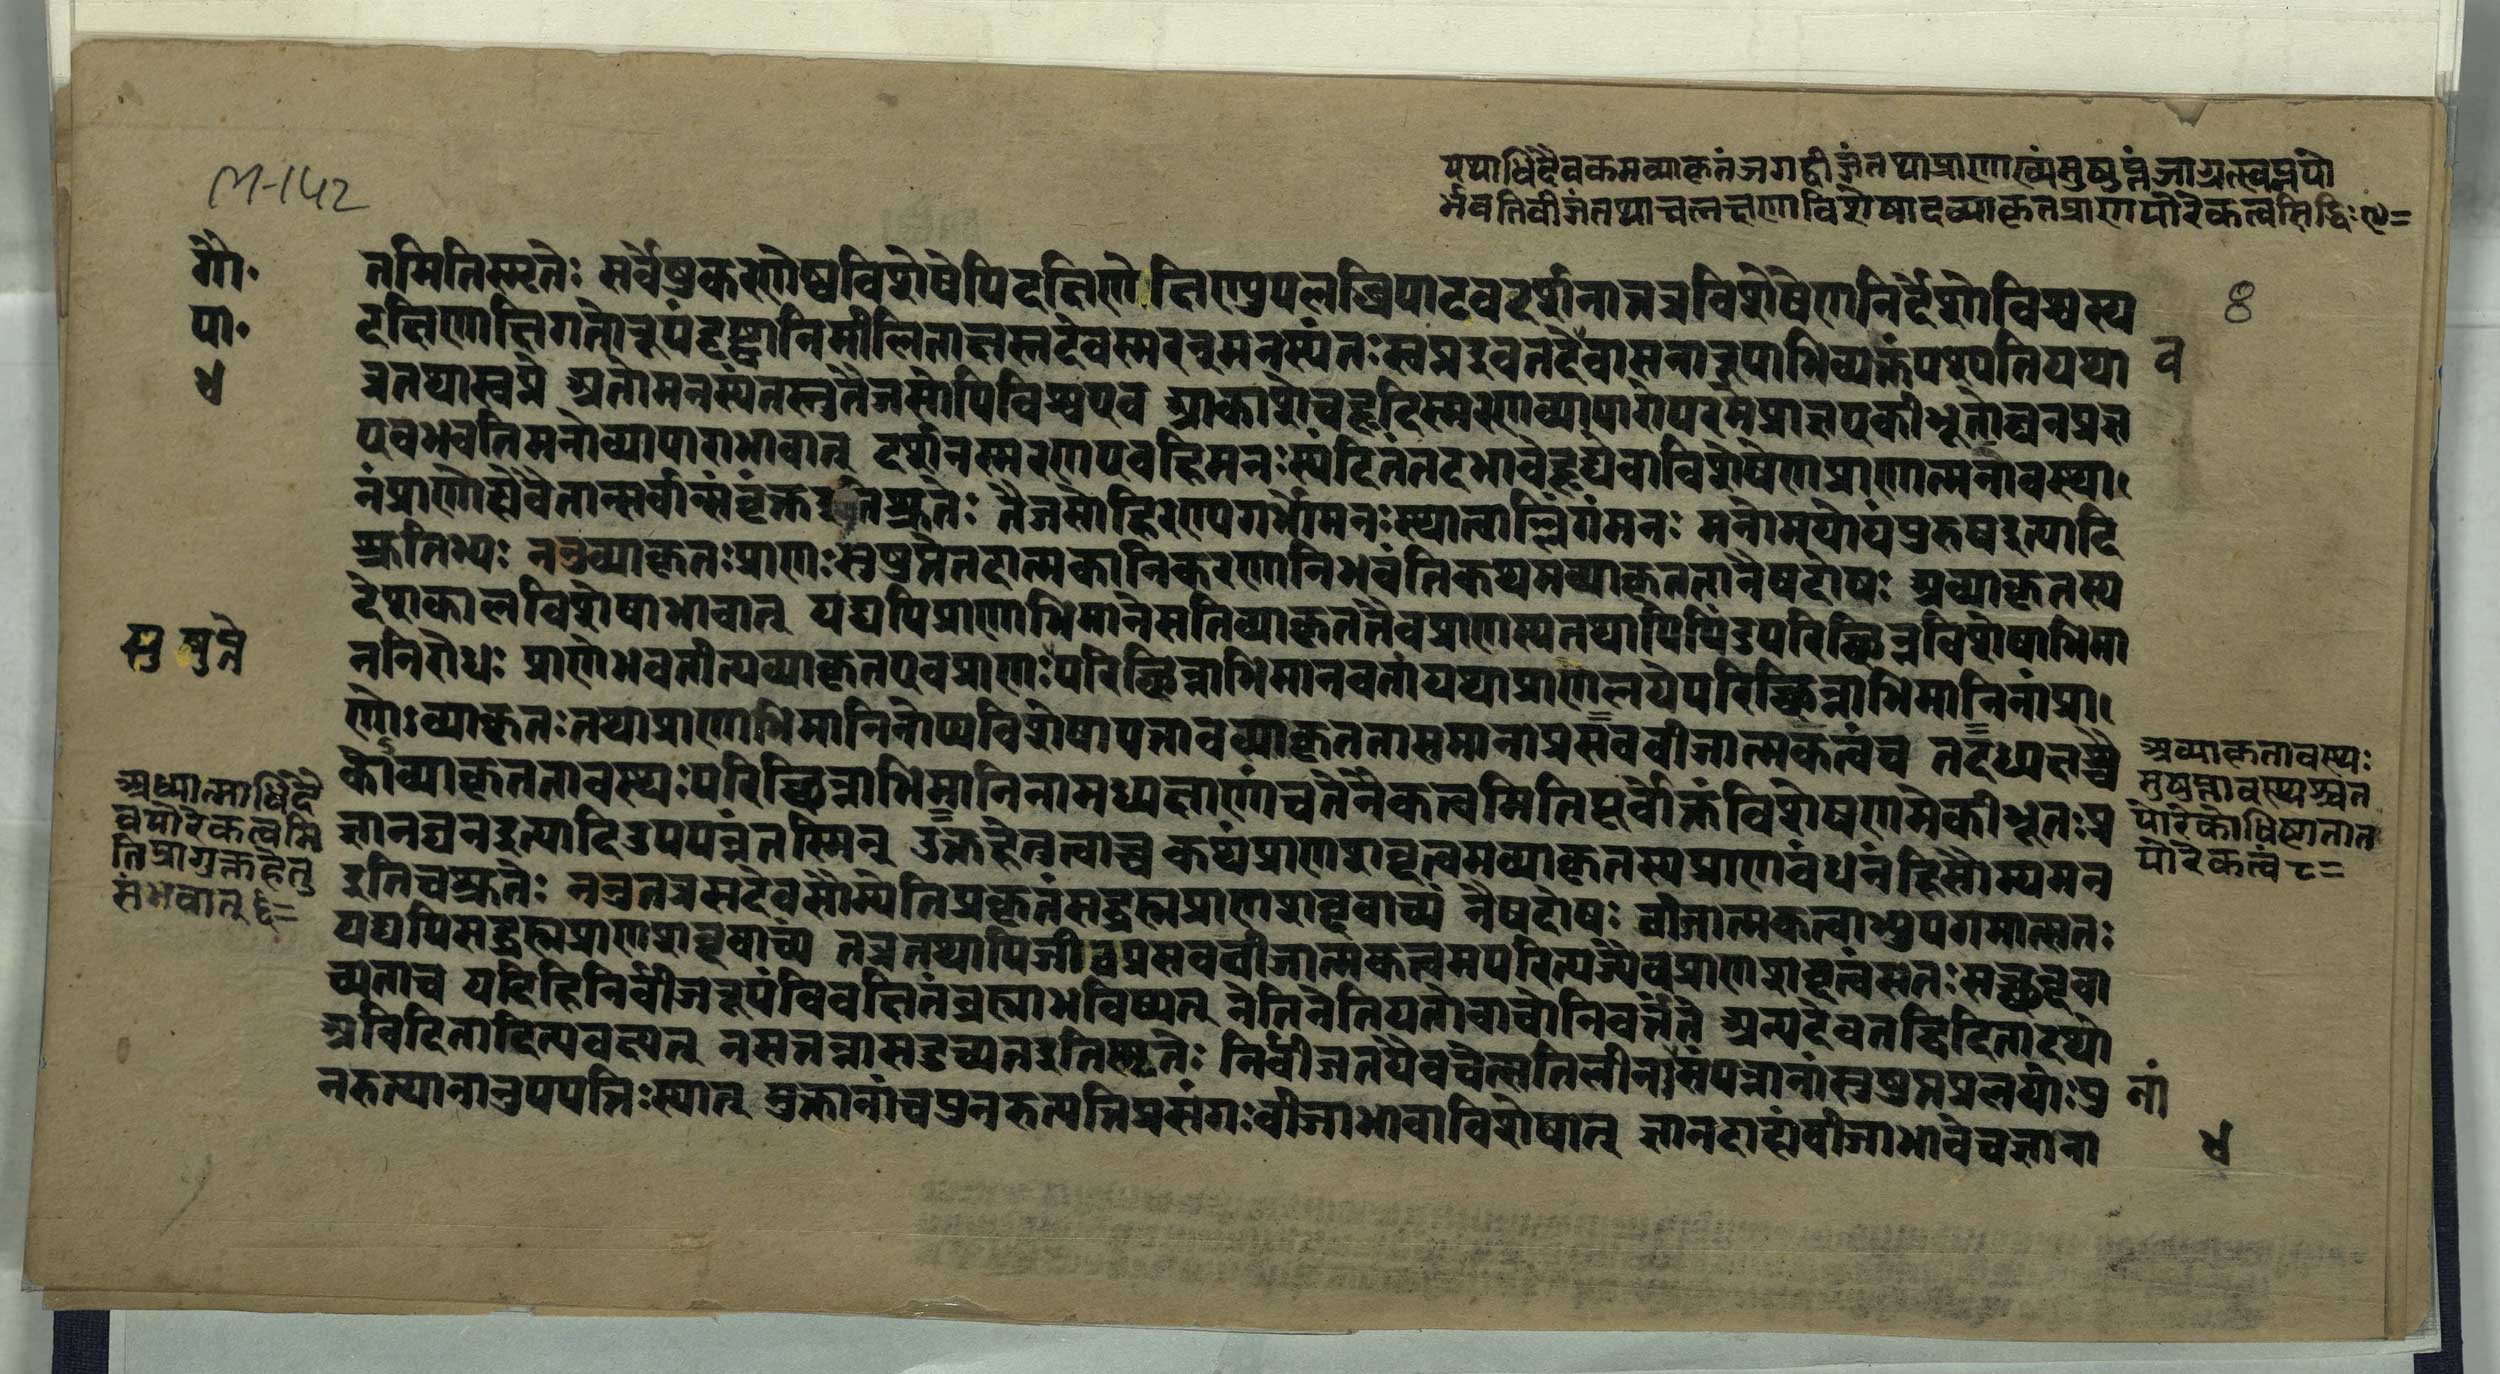 M-142
यथाधिदैवकमव्याकृतंजगद्बीजंतथाप्राणाख्यंसुषुप्तंजाग्रत्स्वप्नयो
र्भवतिबीजंतथाचलक्षणाविशेषादव्याकृतप्राणयोरेकत्वसिद्धिः ७=
गौ॰
पा॰
४
8
तमितिस्मृतेः सर्वेषुकरणेष्वविशेषेपिदक्षिणेक्षिण्युपलब्धिपाटवदर्शनात्तत्रविशेषेणनिर्देशोविश्वस्य
दक्षिणाक्षिगतोरूपंदृष्ट्वानिमीलिताक्षस्तदेवस्मरन्मनस्यंतःस्वप्नइवतदेवासनारूपाभिव्यक्तंपश्यतियथा
व
त्रतथास्वप्ने अतोमनस्यंतस्तुतैजसोपिविश्वएव आकाशेचहृदिस्मरणव्यापारोपरमेप्राज्ञएकीभूतोघनप्रज्ञ
एवभवतिमनोव्यापाराभावात् दर्शनस्मरणएवहिमनःस्पंदितंतदभावेहृद्येवाविशेषेणप्राणात्मनावस्था
नंप्राणोह्येवैतान्सर्वान्संवृंक्तइतिश्रुतेः तैजसोहिरण्यगर्भोमनःस्थात्वाल्लिंगंमनः मनोमयोयंपुरुषइत्यादि
श्रुतिभ्यः ननुव्याकृतःप्राणःसुषुप्तेतदात्मकानिकरणानिभवंतिकथमव्याकृततानैषदोषः अव्याकृतस्य
देशकालविशेषाभावात् यद्यपिप्राणाभिमानेसतिव्याकृततैवप्राणस्यतथापिपिंडपरिच्छिन्नविशेषाभिमा
सुषुप्ते
ननिरोधः प्राणेभवतीत्यव्याकृतएवप्राणःपरिच्छिन्नाभिमानवतांयथाप्राणलयेपरिच्छिन्नाभिमानिनांप्रा
णोऽव्याकृतःतथाप्राणाभिमानिनोप्यविशेषापत्तावव्याकृततासमानाप्रसवबीजात्मकत्वंच तदध्यक्षश्चै
कोव्याकृततावस्थःपरिच्छिन्नाभिमानिनामध्यक्षाणांचतेनैकत्वमितिपूर्वोक्तंविशेषणमेकीभूतःप्र
ज्ञानघनइत्यादिउपपन्नंतस्मिन् उक्तहेतुत्वाच्च कथंप्राणशब्दत्वमव्याकृतस्यप्राणबंधनंहिसौम्यमन
इतिचश्रुतेः ननुतत्रसदेवसौम्येतिप्रकृतंसद्ब्रह्मप्राणशब्दवाच्यं नैषदोषः बीजात्मकत्वाभ्युपगमात्सतः
यद्यपिसद्ब्रह्मप्राणशब्दवाच्यं तत्रतथापिजीवप्रसवबीजात्मकत्वमपरित्यज्यैवप्राणशब्दत्वंसतःसच्छब्दवा
च्यताच यदिहिनिर्बीजरूपंविवक्षितंब्रह्माभविष्यत् नेतिनेतियतोवाचोनिवर्त्तंते अन्यदेवतद्विदितादथो
अविदितादित्यवक्ष्यत् नसत्तन्नासदुच्यतइतिस्मृतेः निर्बीजतयैवचेत्सतिलीनासंपन्नानांसुषुप्तप्रलययोःपु
नां
नरुत्थानानुपपत्तिःस्यात् मुक्तानांचपुनरुत्पत्तिप्रसंगःबीजाभावाविशेषात् ज्ञानदाह्यबीजाभावेचज्ञाना
४
अध्यात्माधिदै
वयोरेकत्वमि
तिप्रागुक्तहेतु
संभवात् ६=
अव्याकृतावस्थः
सुषुप्तावस्थश्चत
योरेकोधिष्ठातात
योरेकत्वं ८=